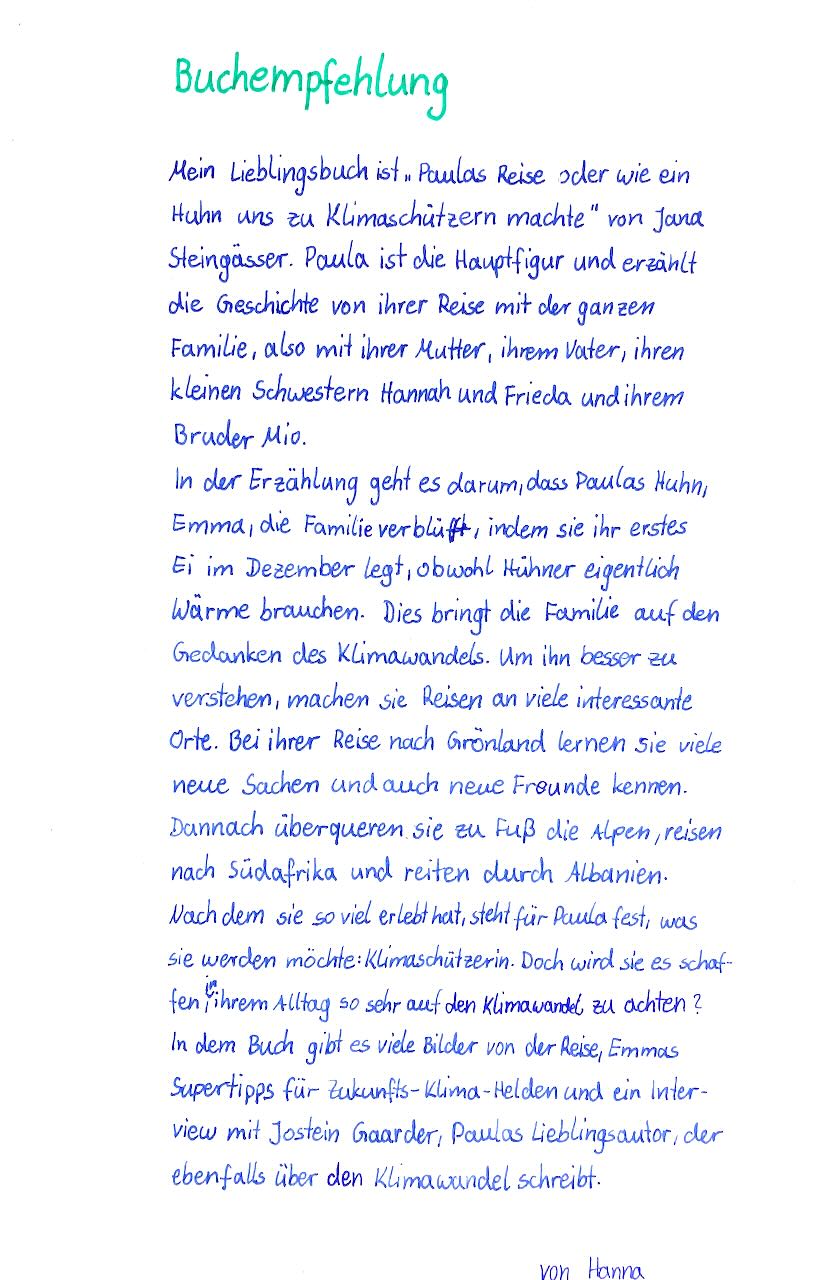 Buchempfehlung
Mein Lieblingsbuch ist „Paulas Reise oder wie ein
Huhn uns zu Klimaschützern machte" von Jana
Steingässer. Paula ist die Hauptfigur und erzählt
die Geschichte von ihrer Reise mit der ganzen
Familie, also mit ihrer Mutter, ihrem Vater, ihren
kleinen Schwestern Hannah und Frieda und ihrem
Bruder Mio.
In der Erzählung geht es darum, dass Paulas Huhn,
Emma, die Familie verblüfft, indem sie ihr erstes
Ei im Dezember legt, obwohl Hühner eigentlich
Wärme brauchen. Dies bringt die Familie auf den
Gedanken des Klimawandels. Um ihn besser zu
verstehen, machen sie Reisen an viele interessante
Orte. Bei ihrer Reise nach Grönland lernen sie viele
neue Sachen und auch neue Freunde kennen.
Dannach überqueren sie zu Fuß die Alpen, reisen
nach Südafrika und reiten durch Albanien.
Nachdem sie so viel erlebt hat, steht für Paula fest, was
sie werden möchte: Klimaschützerin. Doch wird sie es schaf-
fen, in ihrem Alltag so sehr auf den Klimawandel zu achten?
In dem Buch gibt es viele Bilder von der Reise, Emmas
Supertipps für Zukunfts-Klima-Helden und ein Inter-
view mit Jostein Gaarder, Paulas Lieblingsautor, der
ebenfalls über den Klimawandel schreibt.
von Hanna